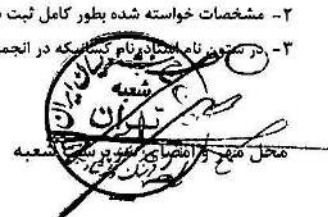 ۲- مشخصات خواسته شده بطور کامل ثبت
۳- در ستون نام استاد، نام کسانیکه در انجم
شعبه
تهران
محل مهر و امضای سرپرست شعبه